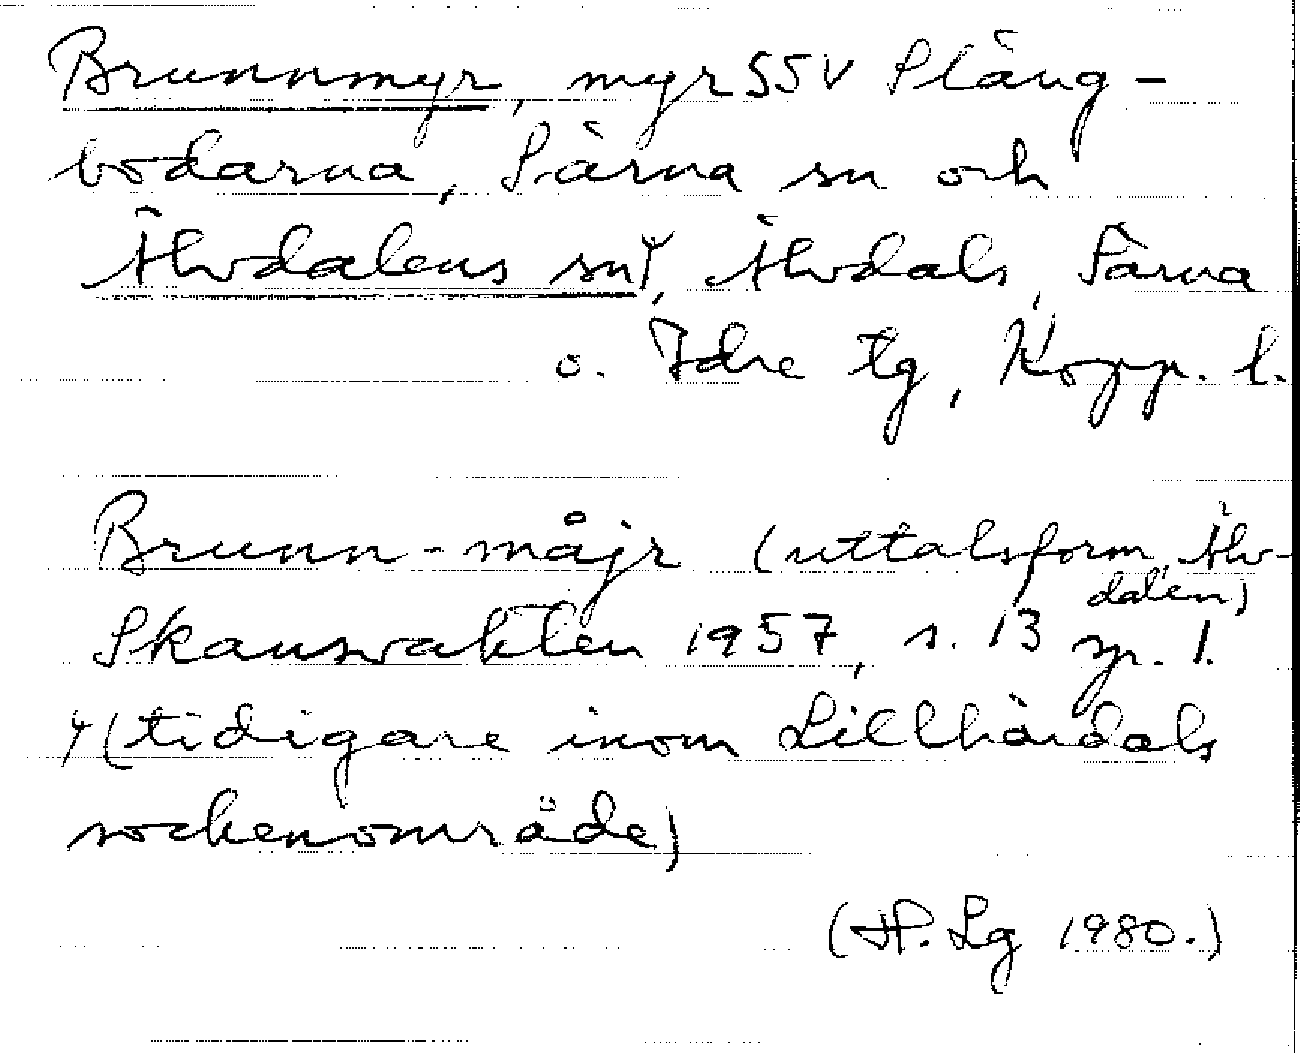 Brunnmyr, myr SSV Pläng-
bodarna, Särna sn och
Älvdalens sn⁺, Älvdals, Särna
o. Idre tg, Kopp. l.
Brunn-måjr (uttalsform, Älv-
dalen)
Skansvakten 1957, s. 13 sp. 1.
+(tidigare inom Lillhärdals
sockenområde)
(H. Lg 1980.)